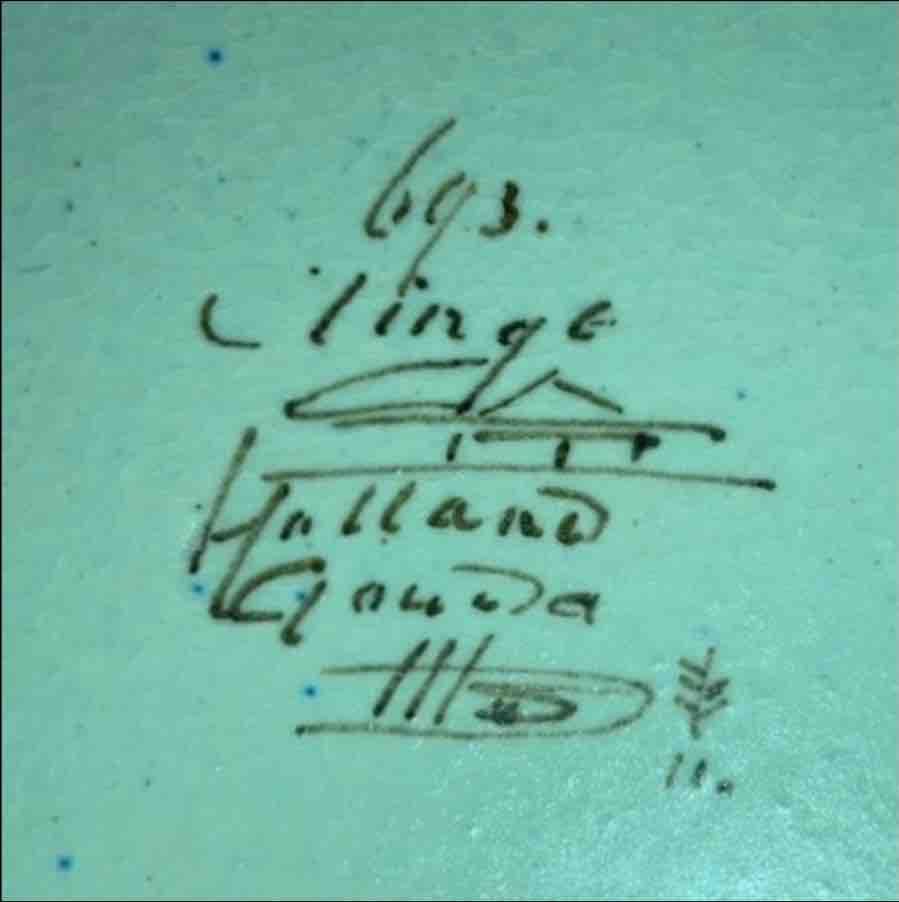 693.
Clinge
Holland
Gouda
11.